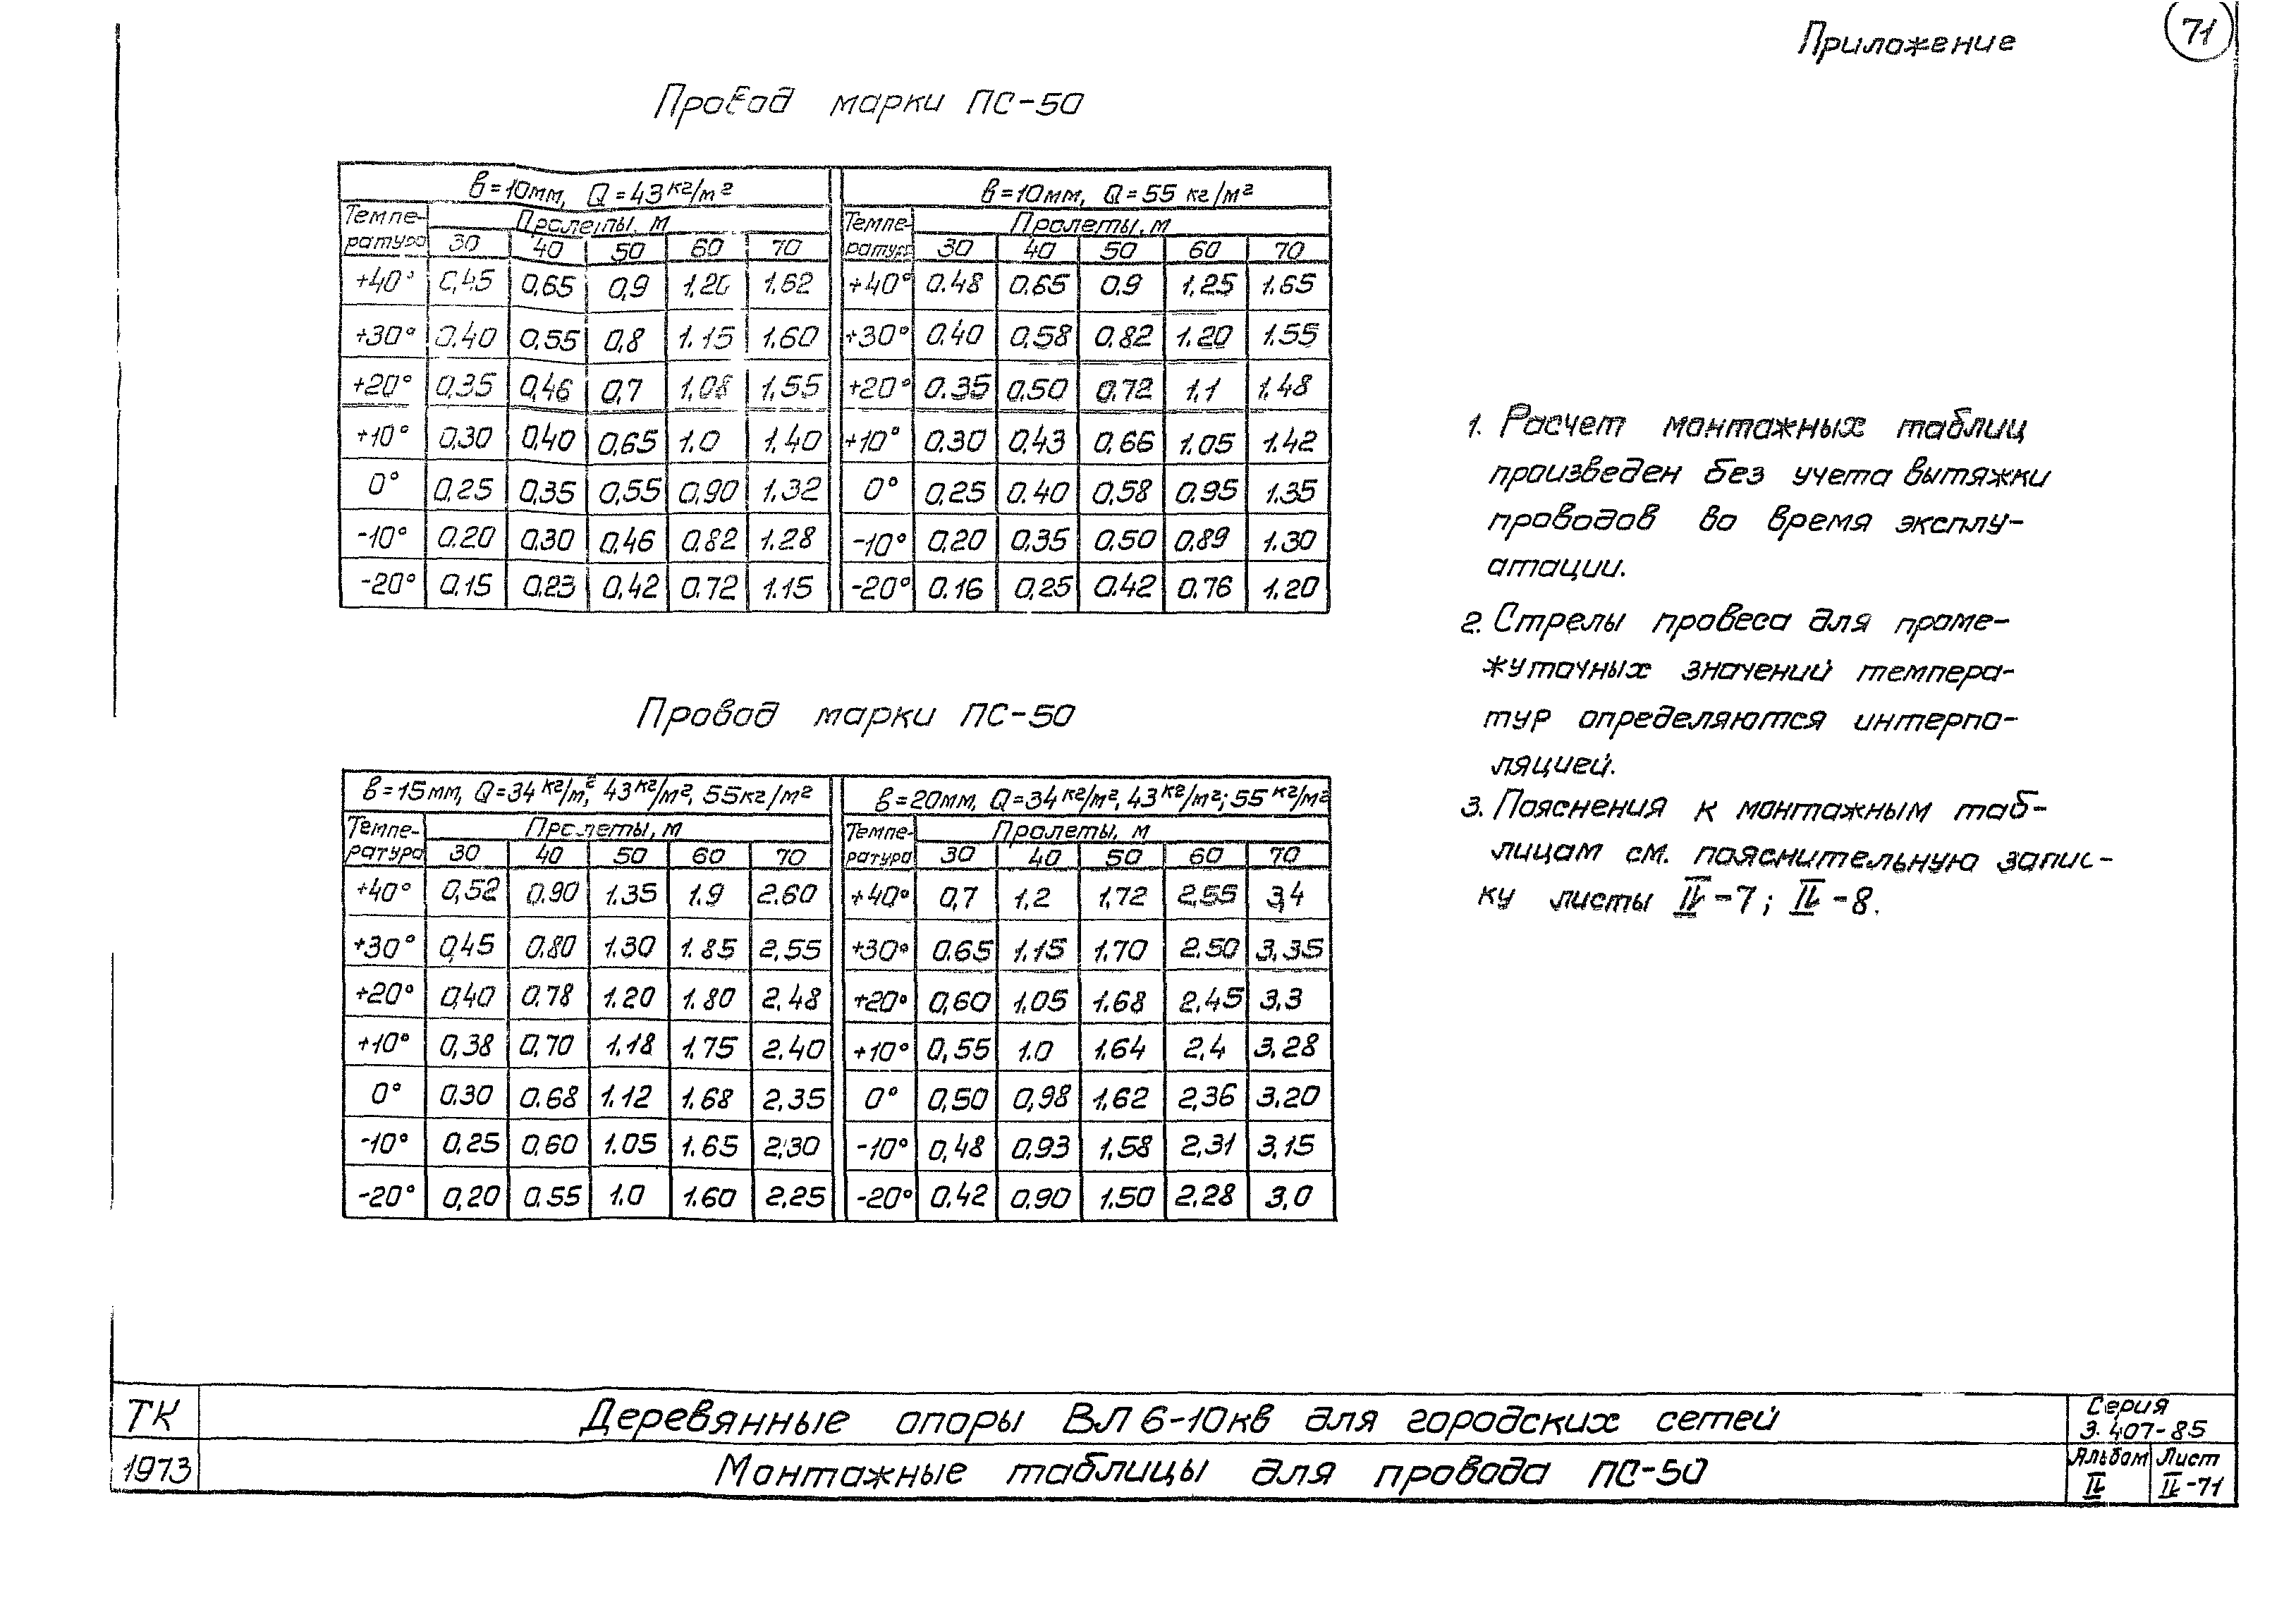 Приложение
71
Провод марки ПС-50
в=10мм, Q=43 кг/м² в=10мм, Q=55 кг/м²
Темпе- Пролеты, м Темпе- Пролеты, м
ратура 30 40 50 60 70 ратура 30 40 50 60 70
+40° 0,45 0,65 0,9 1,20 1.62 +40° 0.48 0,65 0.9 1,25 1.65
+30° 0.40 0,55 0,8 1.15 1.60 +30° 0.40 0,58 0.82 1.20 1.55
+20° 0,35 0,46 0,7 1,08 1,55 +20° 0.35 0,50 0.72 1.1 1,48
+10° 0,30 0,40 0,65 1.0 1,40 +10° 0.30 0,43 0,66 1.05 1.42
0° 0,25 0,35 0,55 0,90 1.32 0° 0,25 0.40 0,58 0.95 1.35
-10° 0.20 0,30 0,46 0.82 1.28 -10° 0,20 0.35 0.50 0.89 1.30
-20° 0.15 0,23 0,42 0.72 1.15 -20° 0.16 0,25 0.42 0.76 1.20
Провод марки ПС-50
в=15мм, Q=34 кг/м², 43 кг/м², 55кг/м² в=20мм, Q=34 кг/м², 43 кг/м²; 55 кг/м²
Темпе- Пролеты, м Темпе- Пролеты, м
ратура 30 40 50 60 70 ратура 30 40 50 60 70
+40° 0,52 0.90 1.35 1.9 2.60 +40° 0,7 1.2 1,72 2,55 3,4
+30° 0,45 0.80 1.30 1.85 2,55 +30° 0.65 1.15 1.70 2.50 3,35
+20° 0,40 0.78 1.20 1.80 2,48 +20° 0,60 1.05 1.68 2.45 3.3
+10° 0,38 0,70 1.18 1.75 2.40 +10° 0,55 1.0 1.64 2,4 3.28
0° 0.30 0.68 1.12 1.68 2,35 0° 0,50 0,98 1.62 2,36 3.20
-10° 0,25 0,60 1.05 1.65 2,30 -10° 0,48 0.93 1.58 2,31 3,15
-20° 0,20 0.55 1.0 1.60 2,25 -20° 0.42 0.90 1.50 2.28 3,0
1. Расчет монтажных таблиц
произведен без учета вытяжки
проводов во время эксплу-
атации.
2. Стрелы провеса для проме-
жуточных значений темпера-
тур определяются интерпо-
ляцией.
3. Пояснения к монтажным таб-
лицам см. пояснительную запис-
ку листы II-7; II-8.
ТК Деревянные опоры ВЛ 6-10кв для городских сетей Серия
3.407-85
1973 Монтажные таблицы для провода ПС-50 Альбом Лист
II II-71